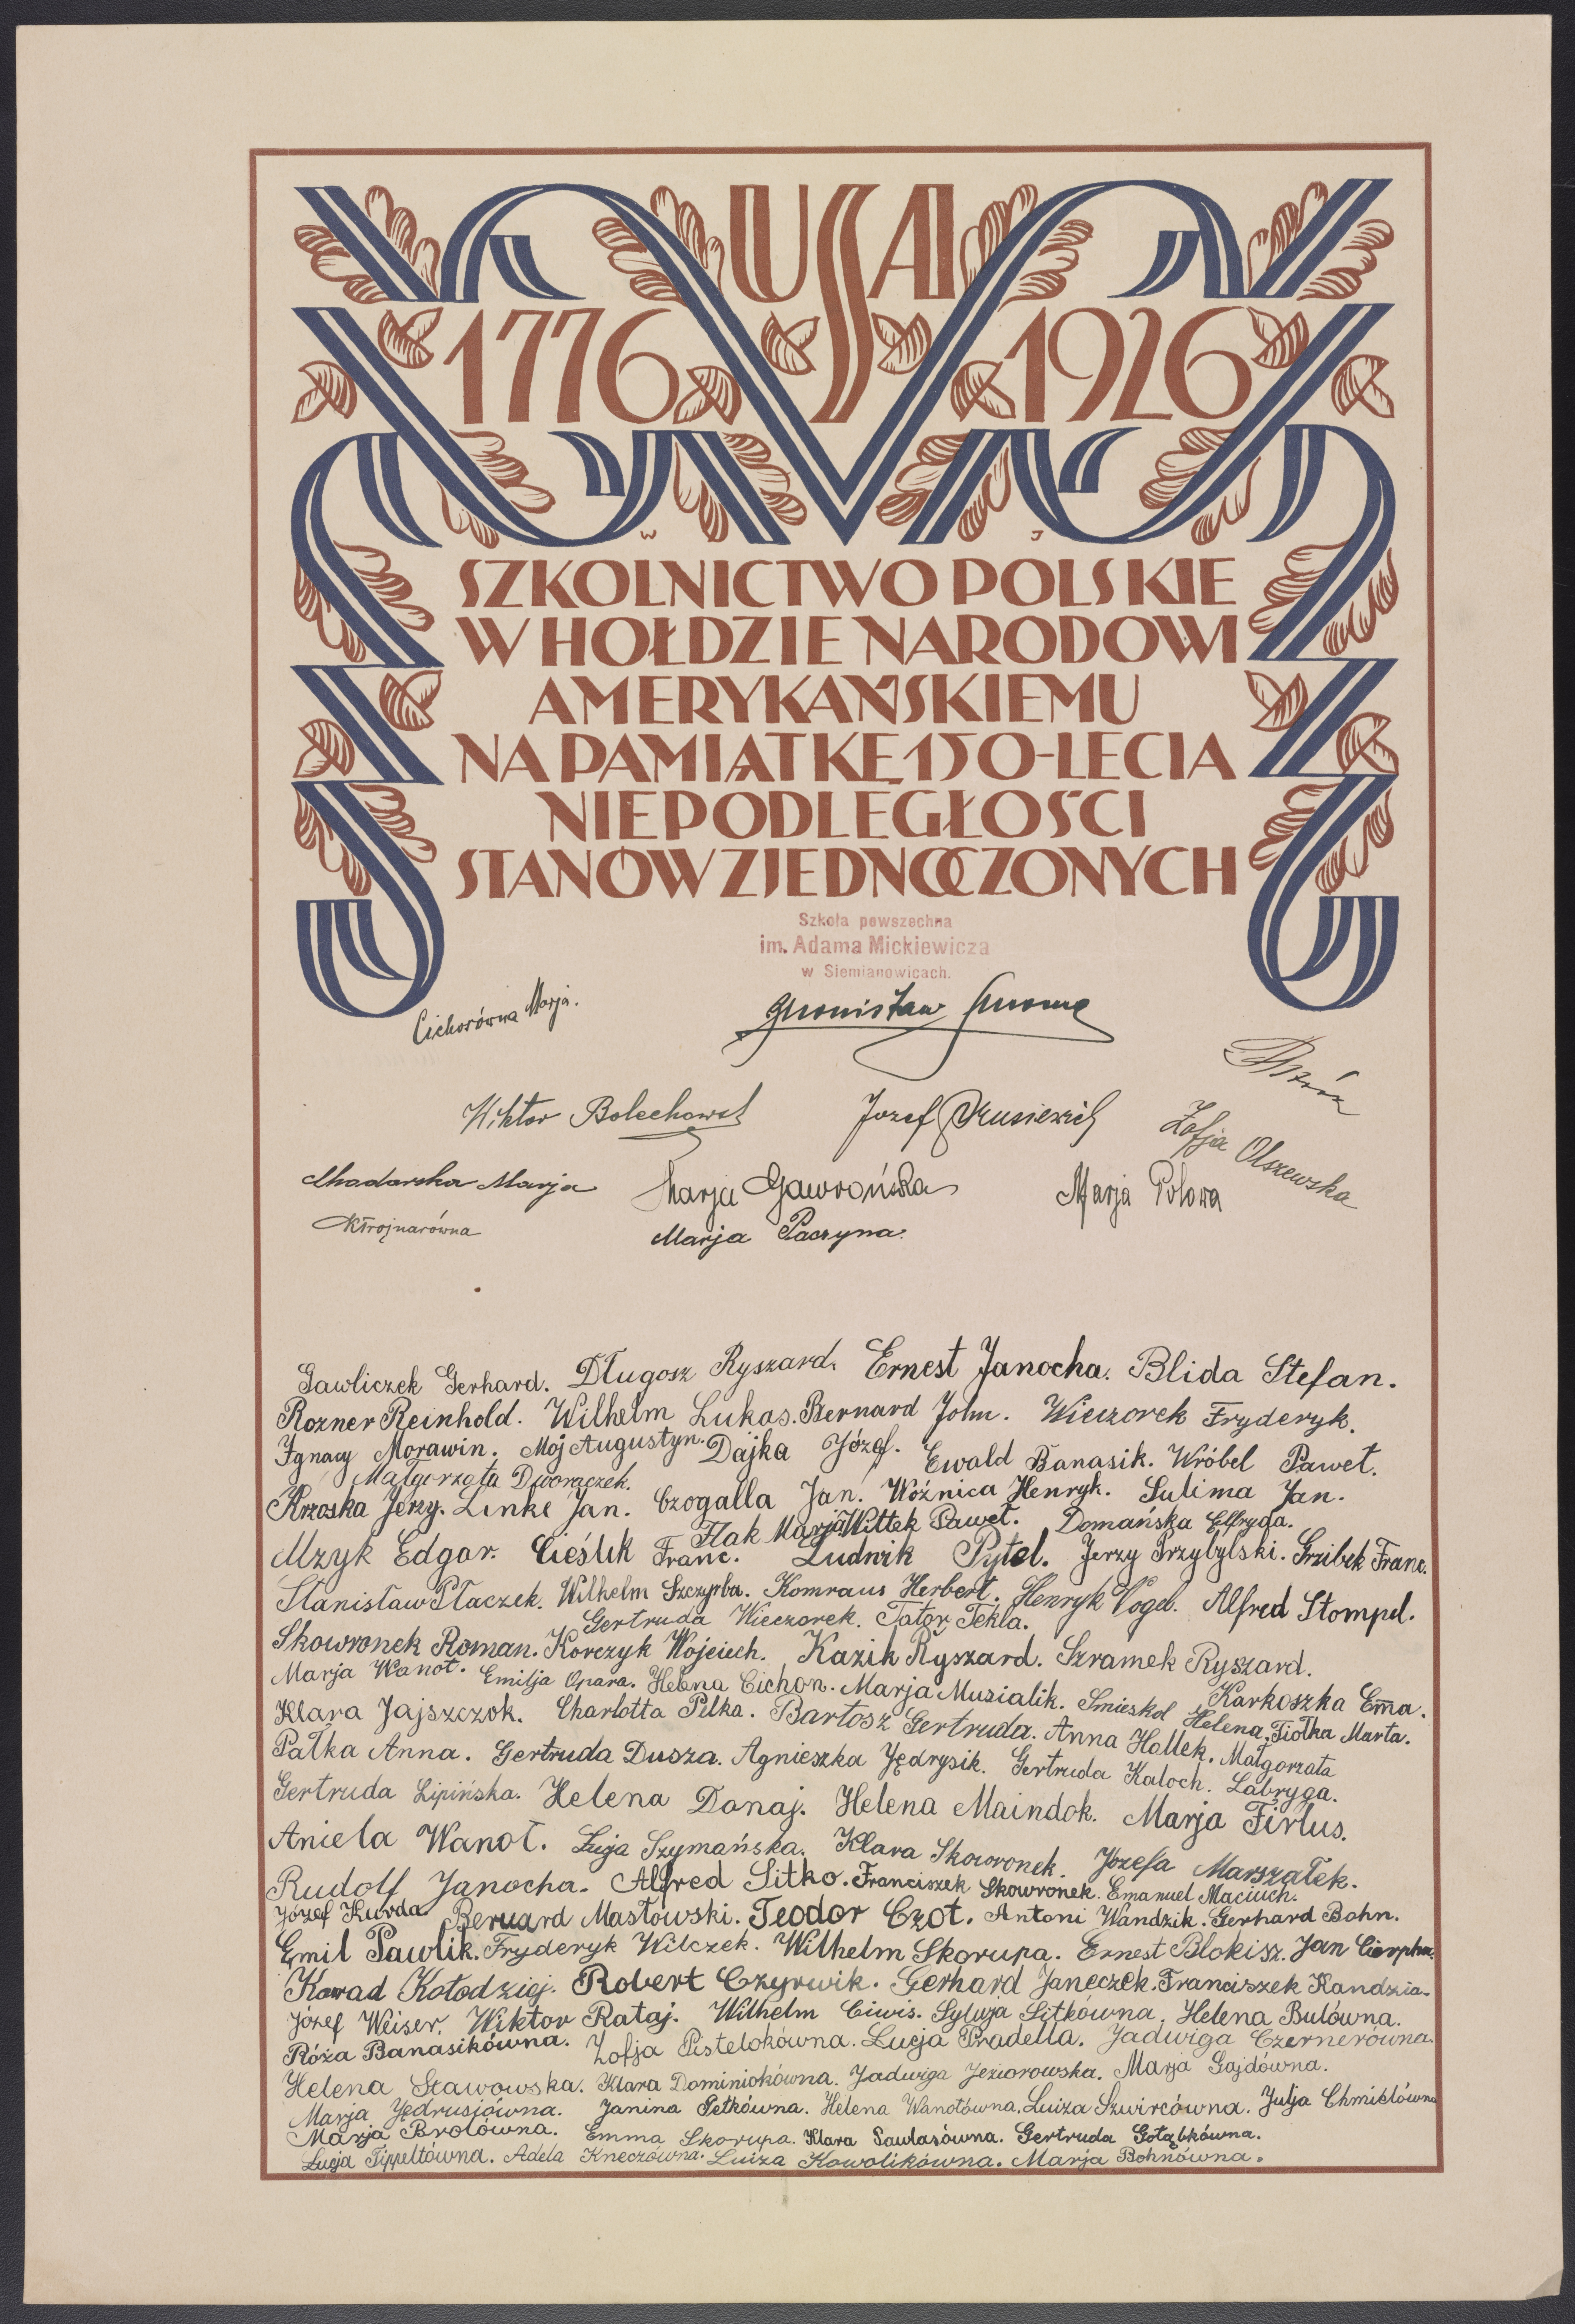 USA
1776 1926
W J
SZKOLNICTWO POLSKIE
W HOŁDZIE NARODOWI
AMERYKAŃSKIEMU
NA PAMIĄTKĘ 150-LECIA
NIEPODLEGŁOŚCI
STANÓW ZJEDNOCZONYCH
Szkoła powszechna
im. Adama Mickiewicza
w Siemianowicach.
Cichorówna Marja.
Wiktor Józef
Zofja Olszewska
Marja
Marja Gawrońska Marja Polowa
Marja Paczyna.
Gawliczek Gerhard. Długosz Ryszard. Ernest Janocha. Blida Stefan.
Rozner Reinhold. Wilhelm Lukas. Bernard John. Wieczorek Fryderyk.
Ignacy Morawin. Mój Augustyn. Dajka Józef. Ewald Banasik. Wróbel Paweł.
Małgorzata Dworaczek.
Krzoska Jerzy. Linke Jan. Czogalla Jan. Woźnica Henryk. Sulima Jan.
Flak Marja Wittek Paweł. Domańska Elfryda.
Mzyk Edgar. Cieślik Franc. Ludwik Pytel. Jerzy Przybylski. Grzibek Franc.
Stanisław Ptaczek. Wilhelm Szczyrba. Komraus Herbert. Henryk Vogel. Alfred Stompel.
Gertruda Wieczorek. Tator Tekla.
Skowronek Roman. Korczyk Wojciech. Kazik Ryszard. Szramek Ryszard.
Marja Wanot. Emilja Opara. Helena Cichon. Marja Musialik. Smieskol Helena. Karkoszka Em̅a.
Klara Jajszczok. Charlotta Pilka. Bartosz Gertruda. Anna Hallek. Fiołka Marta.
Pałka Anna. Gertruda Dusza. Agnieszka Jędrysik. Gertruda Kaloch. Małgorzata Labryga.
Gertruda Lipińska. Helena Donaj. Helena Maindok. Marja Firlus.
Aniela Wanot. Łucja Szymańska. Klara Skowronek. Józefa Marszałek.
Rudolf Janocha. Alfred Sitko. Franciszek Skowronek. Emanuel Maciuch.
Józef Kurda Bernard Masłowski. Teodor Czot. Antoni Wandzik. Gerhard Bohn.
Emil Pawlik. Fryderyk Wilczek. Wilhelm Skorupa. Ernest Blokisz. Jan Cierpka.
Konrad Kołodziej. Robert Czyrwik. Gerhard Janeczek. Franciszek Kandzia.
Józef Weiser. Wiktor Rataj. Wilhelm Ciwis. Sylwja Sitkówna. Helena Bulówna.
Róża Banasikówna. Zofja Pistelokówna. Łucja Pradella. Jadwiga Czernerówna.
Helena Stawowska. Klara Dominiokówna. Jadwiga Jeziorowska. Marja Gajdówna.
Marja Jędrusiówna. Janina Petkówna. Helena Wanotówna. Luiza Szwircówna. Julja Chmielówna
Marja Brolówna. Emma Skorupa. Klara Saulasówna. Gertruda Gołąbkówna.
Łucja Tippeltówna. Adela Kneczówna. Luiza Kowolikówna. Marja Bohnówna.